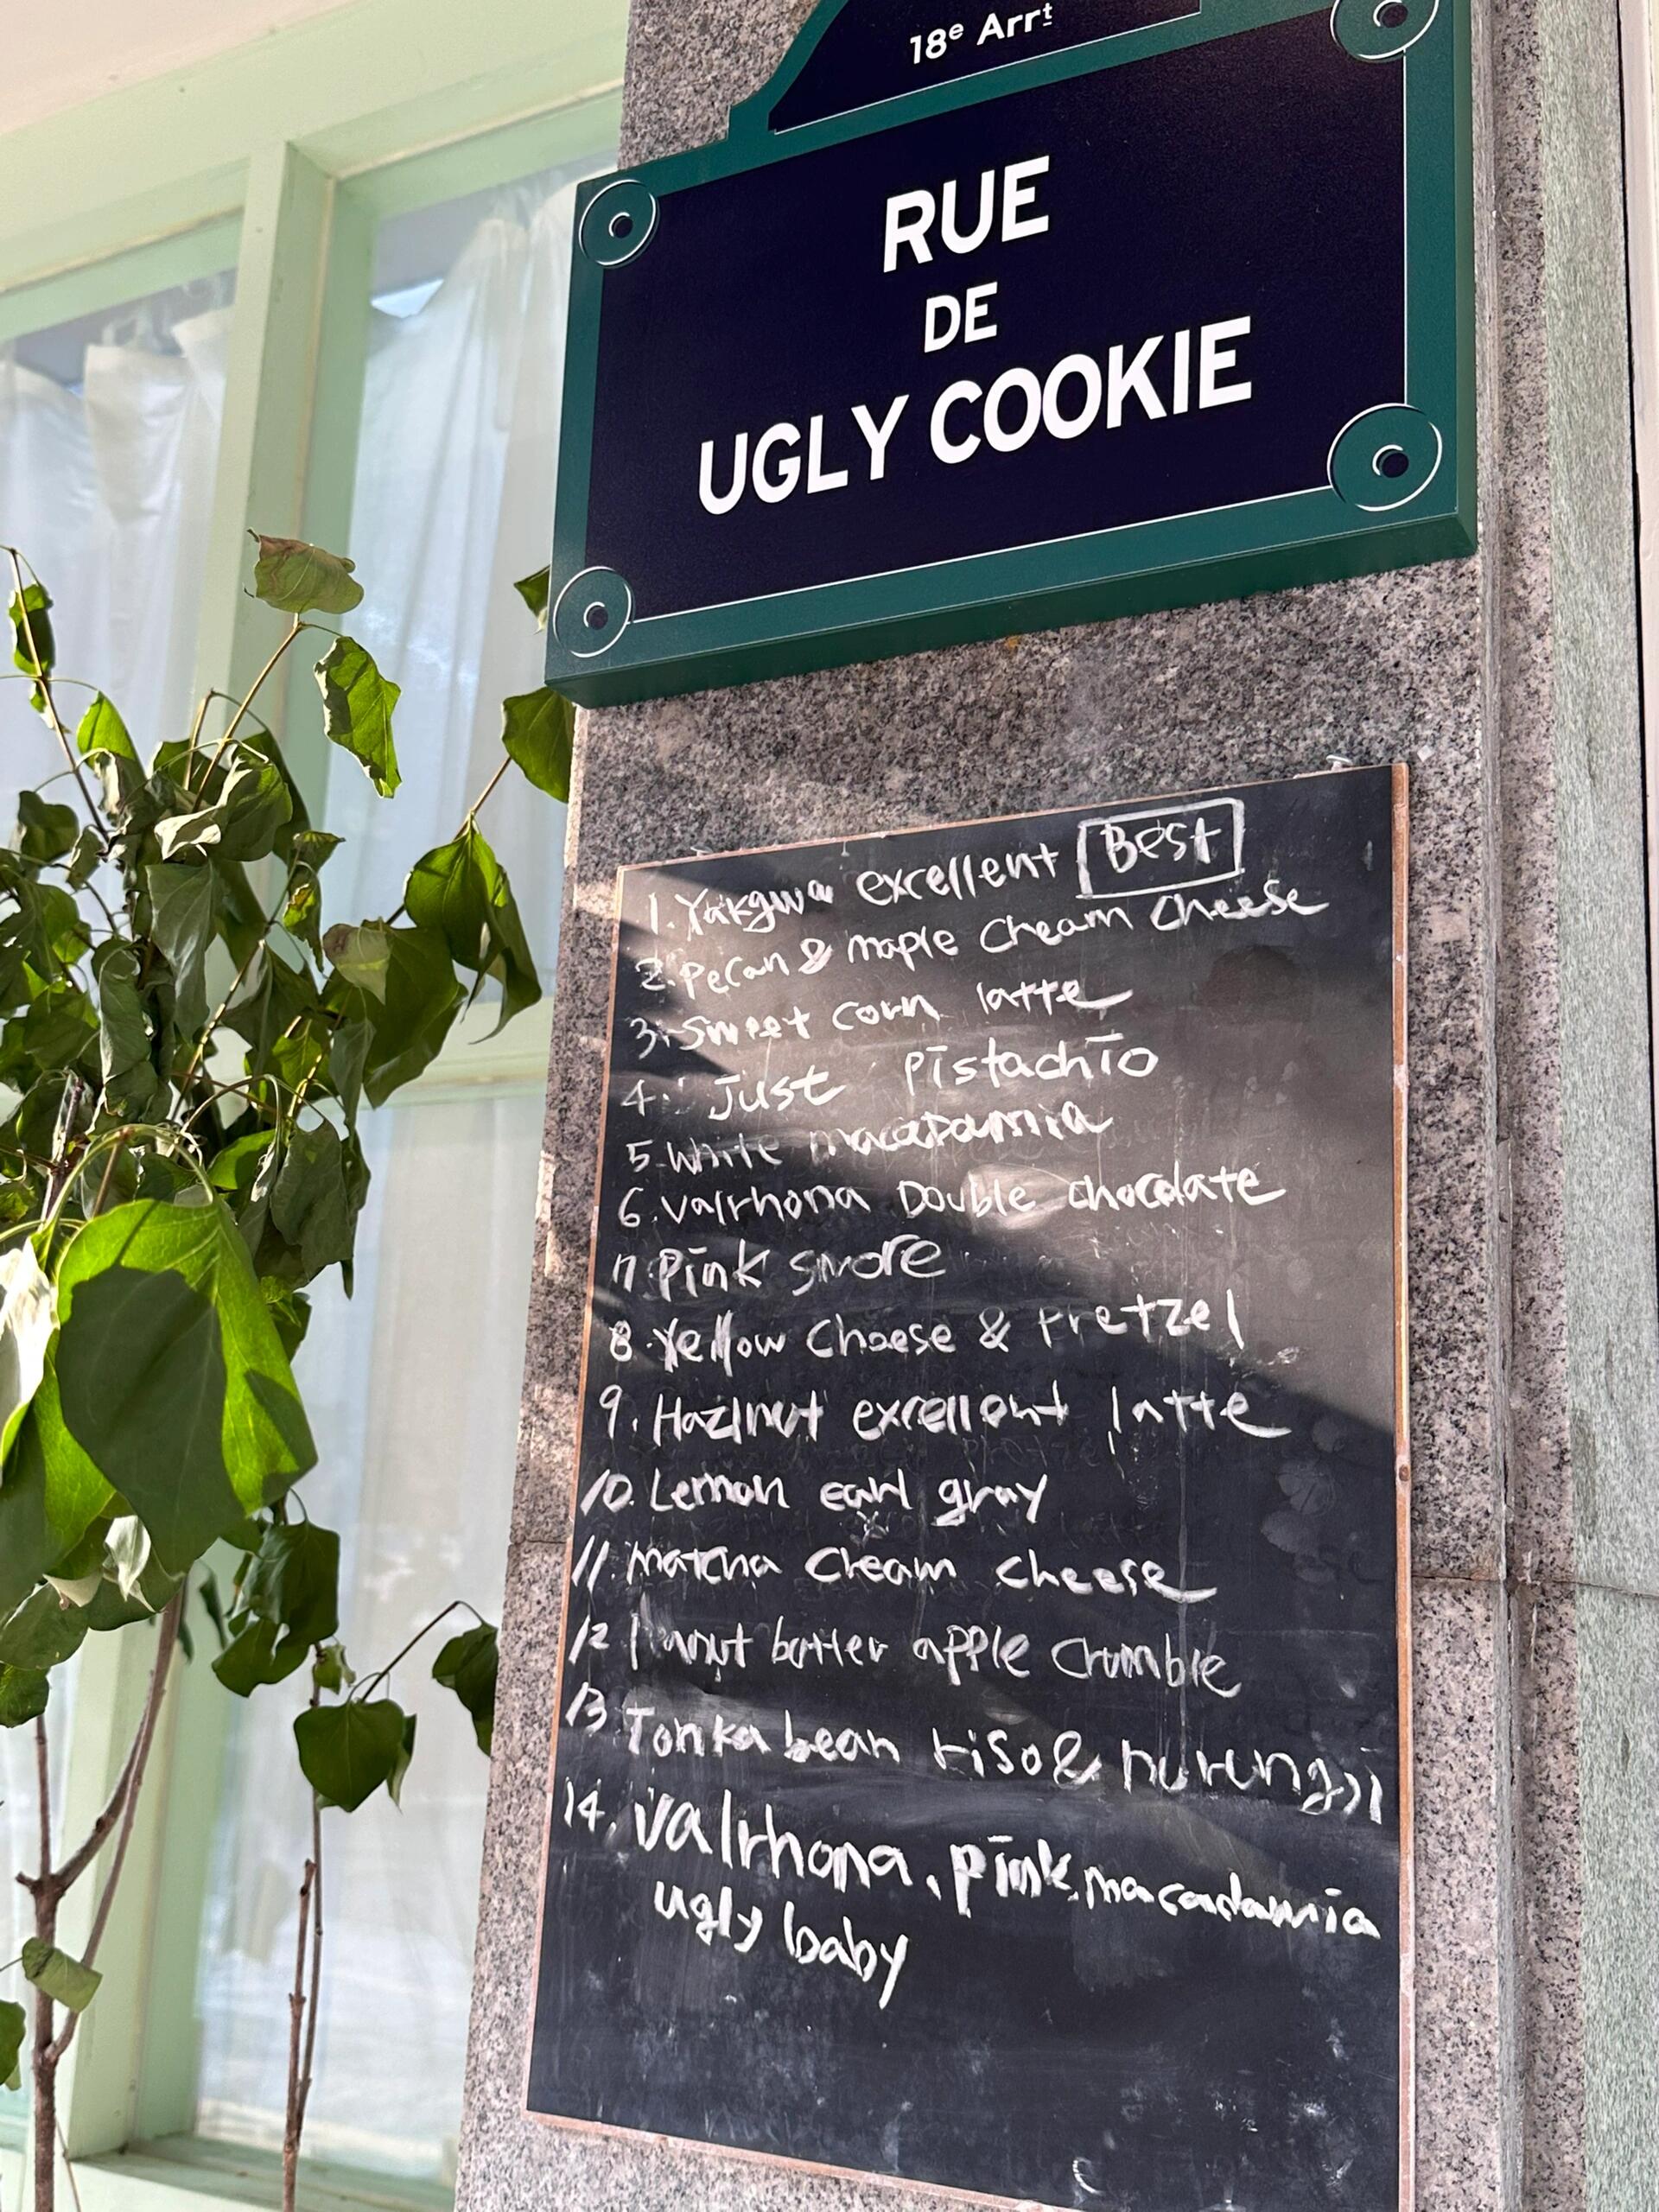 18e Arrt
RUE
DE
UGLY COOKIE
1. Yakgwa excellent Best
2. Pecan & maple Cheam Cheese
3. Sweet corn latte
4. Just Pistachio
5. White macadamia
6. Valrhona Double chocolate
7. Pink smore
8. Yellow Cheese & Pretzel
9. Hazlnut excellent latte
10. Lemon earl gray
11. Matcha Cream cheese
12 butter apple Crumble
13. Tonka bean riso & nurungji
14. Valrhona, pink, macadamia
ugly baby